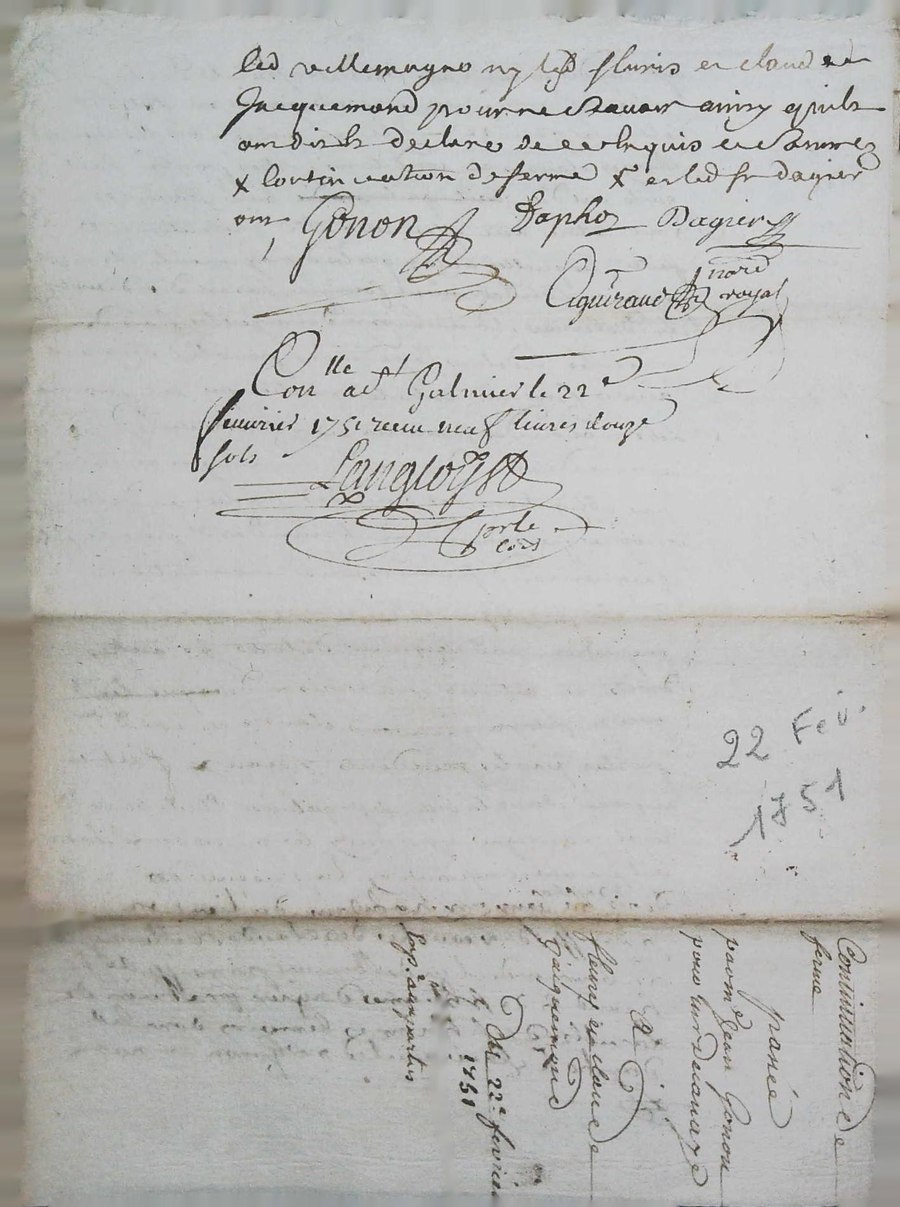 led villemagne ny lesd fluris et claude
Jacquemond pour ne scavoir ainsy quils
ont dit et declaré de ce enquis et sommez
x continuation de ferme x et led sr dagier
ont
Gonon Dapho Dagier
Ciguiraud nore
royal
Conlle a st Galmier le 22e
fevvrier 1751 receu neuf livres douze
sols
Langlois
22 Fev.
1751
Continuation de
ferme
passée
par me Jean Gonon
pour
A
fleury et claude
Jaquemond
Du 22e fevrier
1751
Exp. aux parties